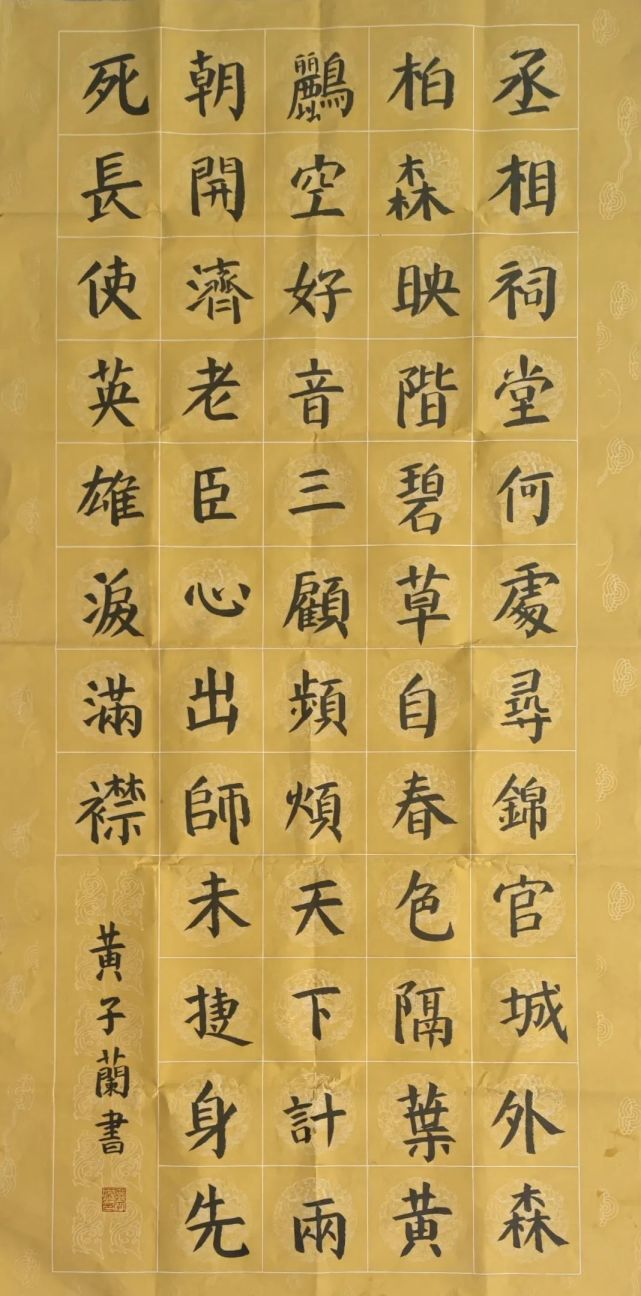 丞相祠堂何處尋錦官城外森
柏森映階碧草自春色隔葉黄
鸝空好音三顧頻煩天下計兩
朝開濟老臣心出師未捷身先
死長使英雄淚滿襟
黄子蘭書